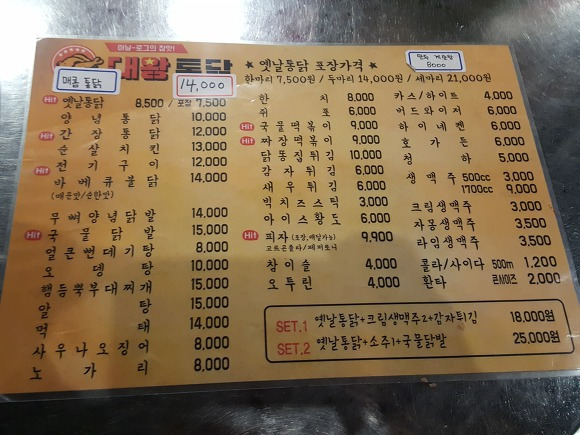 아날-로그의 참맛!
대왕통닭
매콤 통닭
14,000
Hit 옛날통닭 8,500 / 포장 7,500
양념통닭 10,000
Hit 간장통닭 12,000
순살치킨 13,000
Hit 전기구이 12,000
바베큐불닭 14,000
(매운맛/순한맛)
무뼈양념닭발 14,000
Hit 국물닭발 15,000
얼큰뻔데기탕 8,000
오뎅탕 10,000
햄듬뿍부대찌개 15,000
알탕 15,000
먹태 14,000
사우나오징어 8,000
노가리 8,000
★ 옛날통닭 포장가격 ★
한마리 7,500원 / 두마리 14,000원 / 세마리 21,000원
8000
한치 8,000
쥐포 6,000
Hit 국물떡볶이 9,000
Hit 짜장떡볶이 9,000
닭똥집튀김 10,000
감자튀김 6,000
새우튀김 6,000
빅치즈스틱 3,000
아이스황도 6,000
Hit 피자 (포장, 배달가능) 9,900
고르곤졸라/페퍼로니
참이슬 4,000
오투린 4,000
카스/하이트 4,000
버드와이저 6,000
하이네켄 6,000
호가든 6,000
청하 5,000
생맥주 500cc 3,000
1700cc 9,000
크림생맥주 3,000
자몽생맥주 3,500
라임생맥주 3,500
콜라/사이다 500m 1,200
환타 1.5사이즈 2,000
SET.1 옛날통닭+크림생맥주2+감자튀김 18,000원
SET.2 옛날통닭+소주1+국물닭발 25,000원